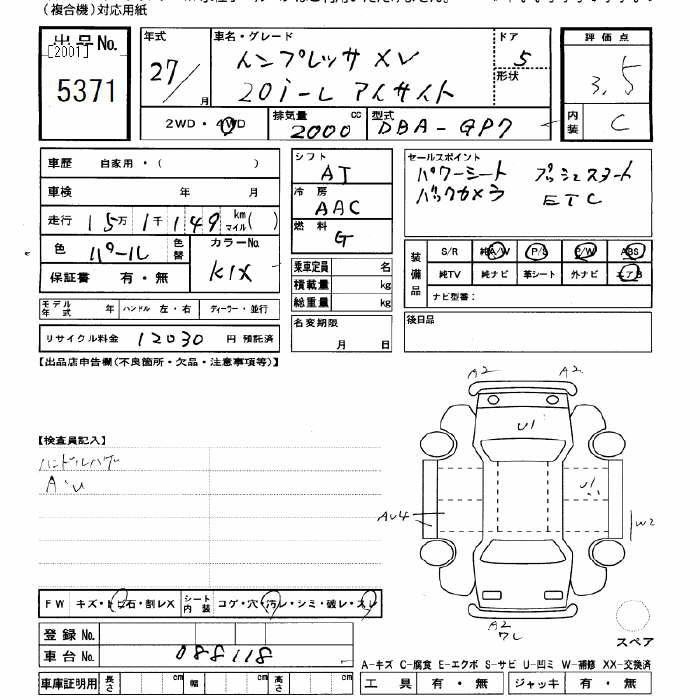 (複合機)対応用紙
出品No.
[2001]
5371
年式 27/ 月
車名・グレード インプレッサ XV
20i-L アイサイト
ドア 5
形状
評価点 3.5
内装 C
2WD・4WD
排気量 2000 cc
型式 DBA-GP7
車歴 自家用・( )
車検 年 月
走行 15万 1千 149 km マイル( )
色 パール 色替
カラーNo. K1X
保証書 有・無
モデル年式 年 ハンドル 左・右 ディーラー・並行
リサイクル料金 12030 円 預託済
シフト AT
冷房 AAC
燃料 G
乗車定員 名
積載量 kg
総重量 kg
名変期限
月 日
セールスポイント
パワーシート プッシュスタート
バックカメラ ETC
装備品
S/R 純A/W P/S P/W ABS
純TV 純ナビ 革シート 外ナビ エアB
ナビ型番:
後日品
【出品店申告欄(不良箇所・欠品・注意事項等)】
【検査員記入】
ハンドルハゲ
A・U
A2 A2
U1
U1
AU4
W2
A2
FW キズ・トビ石・割レX シート内装 コゲ・穴・汚レ・シミ・破レ・スレ
登録No.
車台No. 088118
車庫証明用 長さ cm 幅 cm 高さ cm
スペア
A-キズ C-腐食 E-エクボ S-サビ U-凹ミ W-補修 XX-交換済
工具 有・無 ジャッキ 有・無